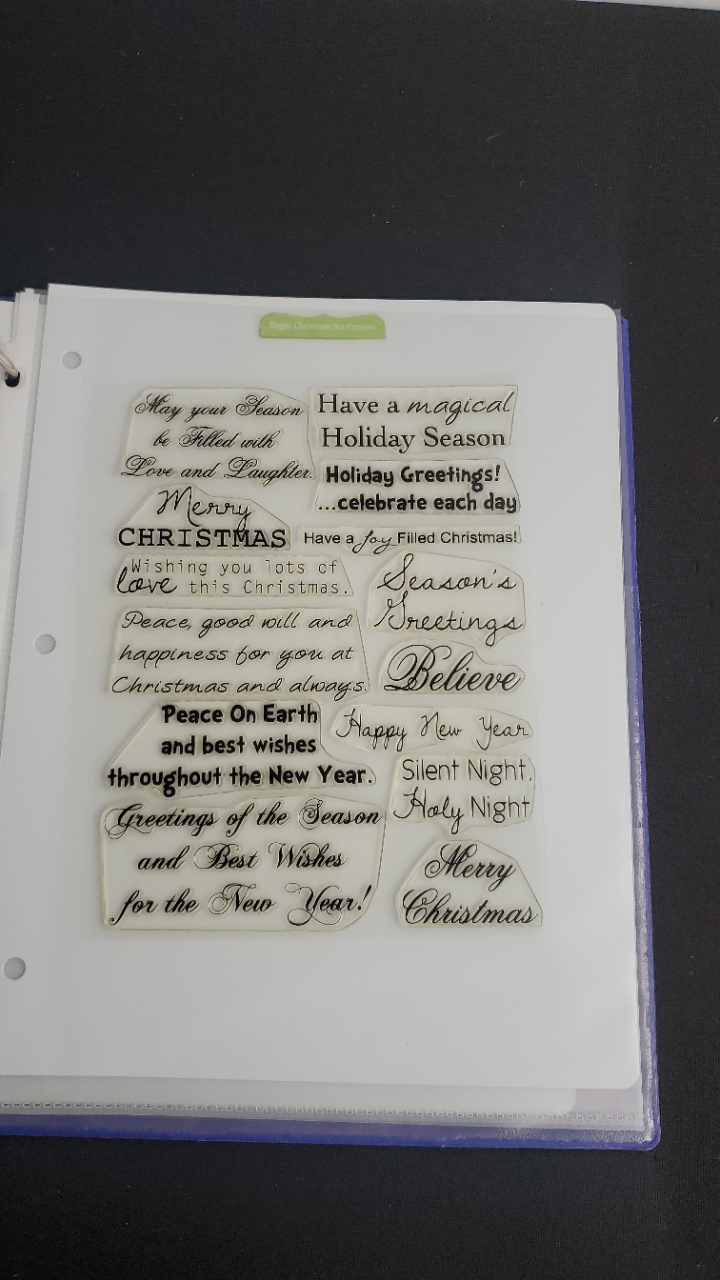 Christmas Sentiments
May your Season
be Filled with
Love and Laughter.
Have a magical
Holiday Season
Holiday Greetings!
...celebrate each day
Merry
CHRISTMAS
Have a Joy Filled Christmas!
Wishing you lots of
love this Christmas.
Season's
Greetings
Peace, good will and
happiness for you at
Christmas and always.
Believe
Peace On Earth
and best wishes
throughout the New Year.
Happy New Year
Silent Night,
Holy Night
Greetings of the Season
and Best Wishes
for the New Year!
Merry
Christmas